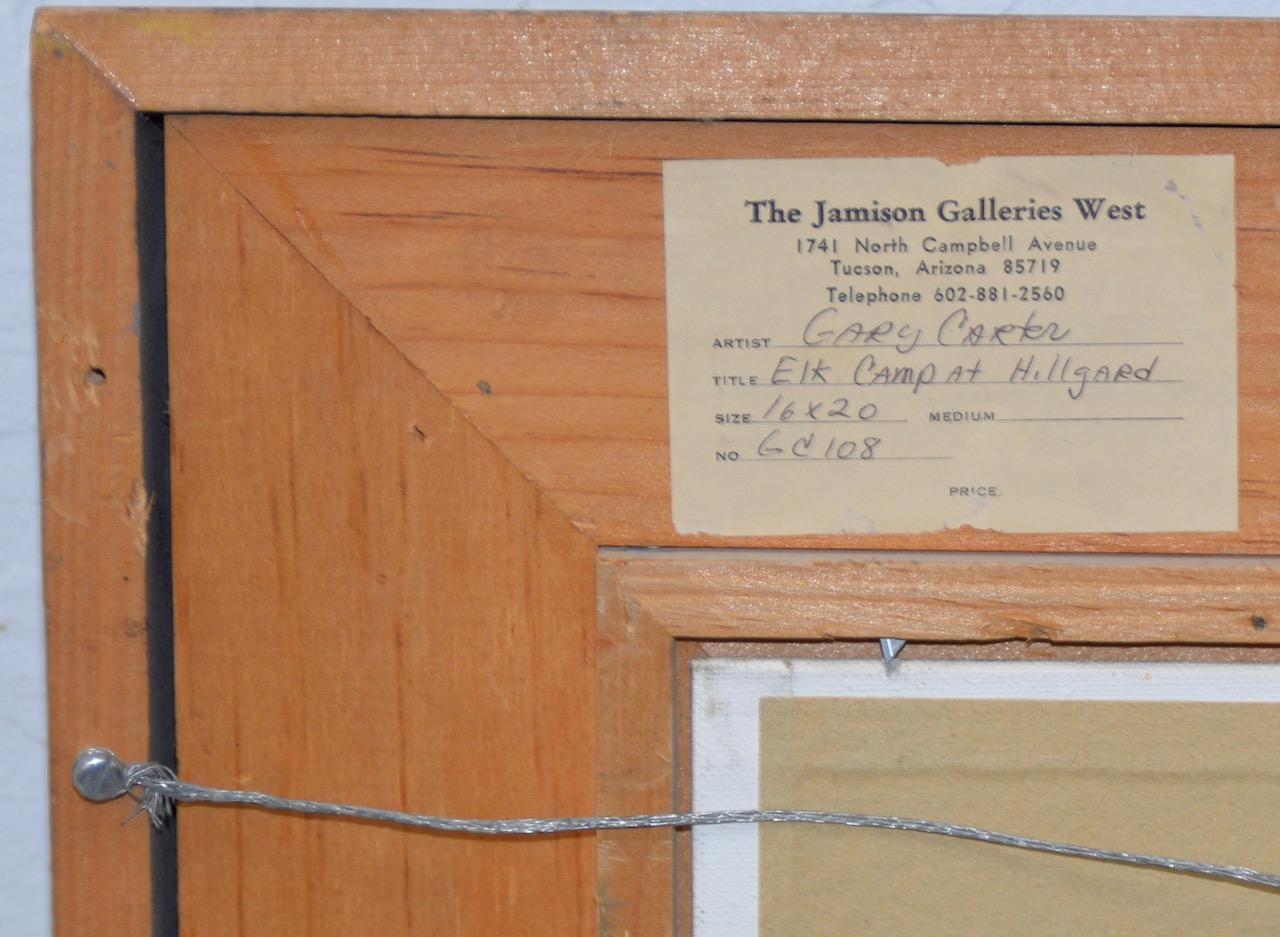 The Jamison Galleries West
1741 North Campbell Avenue
Tucson, Arizona 85719
Telephone 602-881-2560
ARTIST GARY CARter
TITLE Elk CAmp At HillgARd
SIZE 16x20 MEDIUM
NO GC108
PRICE